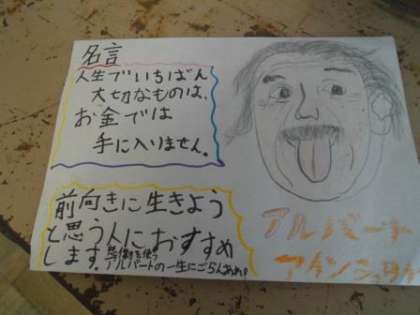 名言
人生でいちばん
大切なものは、
お金では
手に入りません。
前向きに生きよう
と思う人におすすめ
します。
アルバートの一生にごらんあれ。
アルバート
アインシュタイン